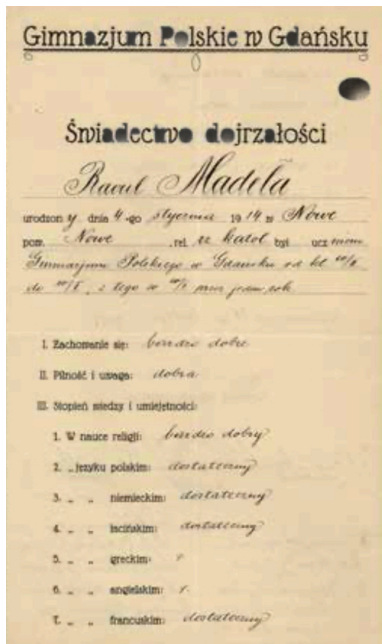 Gimnazjum Polskie w Gdańsku
Świadectwo dojrzałości
Madela
urodzony dnia 4-go stycznia 1914 w Nowe
pow. Nowe, rel. rz. katol był uczniem
Gimnazjum Polskiego w Gdańsku od kl.
do
I. Zachowanie się: bardzo dobre
II. Pilność i uwaga: dobra
III. Stopień wiedzy i umiejętności:
1. W nauce religji: bardzo dobry
2. „ języku polskim: dostateczny
3. „ „ niemieckim: dostateczny
4. „ „ łacińskim: dostateczny
5. „ „ greckim:
6. „ „ angielskim:
7. „ „ francuskim: dostateczny